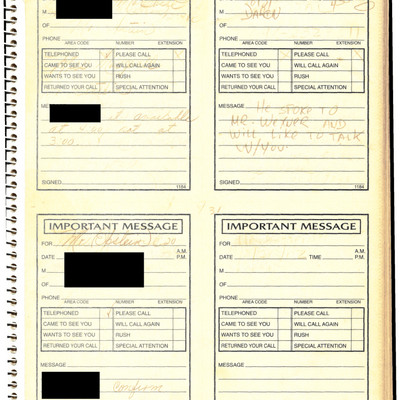 DAREN
M
M
OF
OF
PHONE
PHONE
AREA CODE NUMBER EXTENSION
AREA CODE NUMBER EXTENSION
TELEPHONED PLEASE CALL
TELEPHONED PLEASE CALL
CAME TO SEE YOU WILL CALL AGAIN
CAME TO SEE YOU WILL CALL AGAIN
WANTS TO SEE YOU RUSH
WANTS TO SEE YOU RUSH
RETURNED YOUR CALL SPECIAL ATTENTION
RETURNED YOUR CALL SPECIAL ATTENTION
MESSAGE
at 3:00.
SIGNED 1184
MESSAGE
HE SPOKE TO
MR. WEXNER AND
WILL LIKE TO TALK
W/YOU
SIGNED 1184
IMPORTANT MESSAGE
FOR Mr. Epstein
DATE A.M. P.M.
M
OF
PHONE
AREA CODE NUMBER EXTENSION
TELEPHONED PLEASE CALL
CAME TO SEE YOU WILL CALL AGAIN
WANTS TO SEE YOU RUSH
RETURNED YOUR CALL SPECIAL ATTENTION
MESSAGE
confirm
IMPORTANT MESSAGE
FOR
DATE TIME A.M. P.M.
M
OF
PHONE
AREA CODE NUMBER EXTENSION
TELEPHONED PLEASE CALL
CAME TO SEE YOU WILL CALL AGAIN
WANTS TO SEE YOU RUSH
RETURNED YOUR CALL SPECIAL ATTENTION
MESSAGE